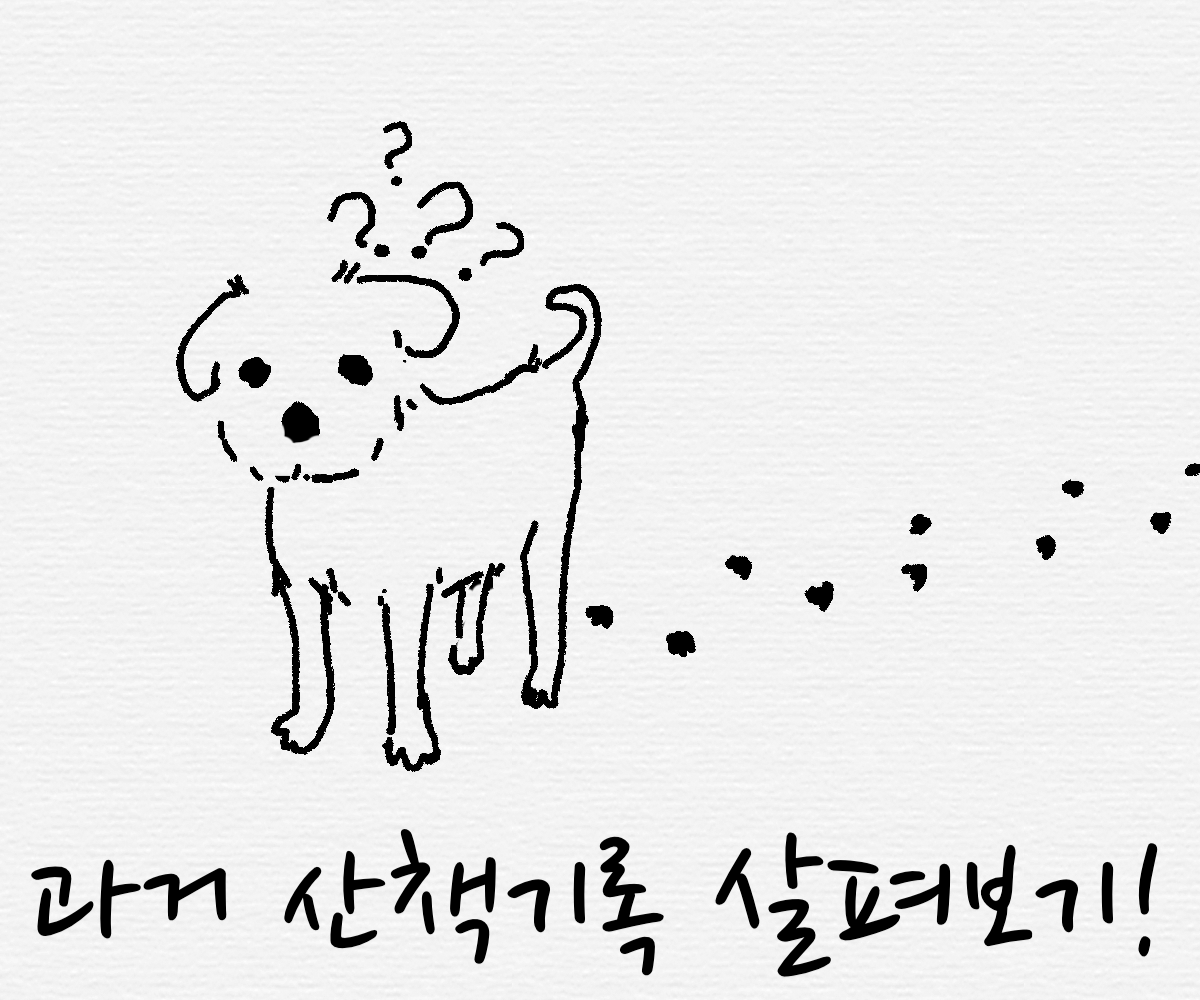 ?
? ? ?
과거 산책기록 살펴보기!